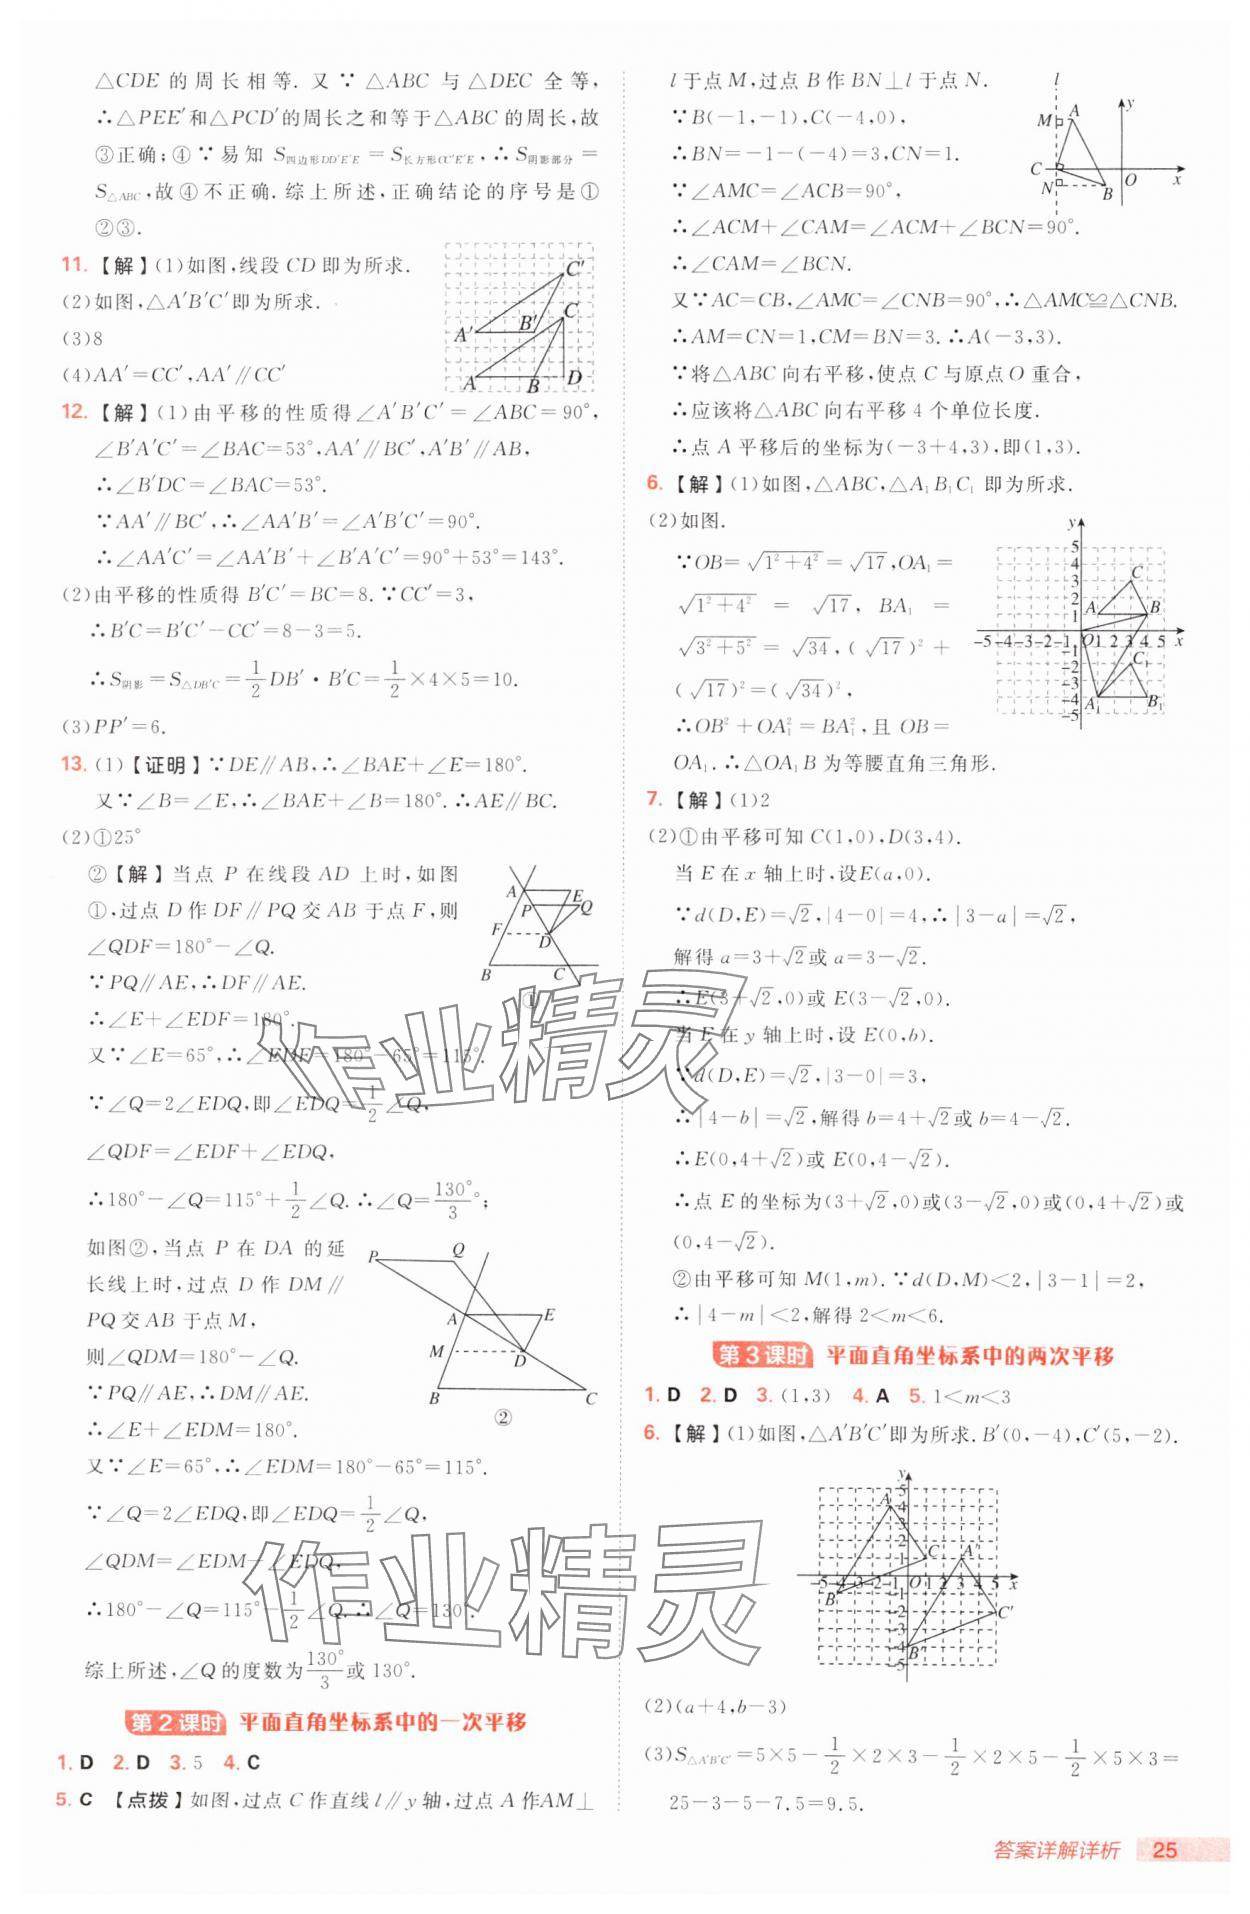 △CDE 的周长相等. 又∵△ABC 与△DEC 全等,
∴△PEE′和△PCD′的周长之和等于△ABC 的周长,故
③正确;④∵易知 S四边形DD′E′E = S长方形CC′E′E,∴S阴影部分 =
S△ABC,故④不正确. 综上所述,正确结论的序号是①
②③.
11. 【解】(1)如图,线段 CD 即为所求.
(2)如图,△A′B′C′即为所求.
(3)8
(4)AA′=CC′,AA′∥CC′
C′
A′
B′
C
A
B
D
12. 【解】(1)由平移的性质得∠A′B′C′=∠ABC=90°,
∠B′A′C′=∠BAC=53°,AA′∥BC′,A′B′∥AB,
∴∠B′DC=∠BAC=53°.
∵AA′∥BC′,∴∠AA′B′=∠A′B′C′=90°.
∴∠AA′C′=∠AA′B′+∠B′A′C′=90°+53°=143°.
(2)由平移的性质得 B′C′=BC=8.∵CC′=3,
∴B′C=B′C′−CC′=8−3=5.
∴S阴影=S△DB′C=1/2 DB′·B′C=1/2×4×5=10.
(3)PP′=6.
13. (1)【证明】∵DE∥AB,∴∠BAE+∠E=180°.
又∵∠B=∠E,∴∠BAE+∠B=180°.∴AE∥BC.
(2)①25°
②【解】当点 P 在线段 AD 上时,如图
①,过点 D 作 DF∥PQ 交 AB 于点 F,则
∠QDF=180°−∠Q.
∵PQ∥AE,∴DF∥AE.
∴∠E+∠EDF=180°.
又∵∠E=65°,∴∠EDF=180°−65°=115°.
∵∠Q=2∠EDQ,即∠EDQ=1/2∠Q,
∠QDF=∠EDF+∠EDQ,
∴180°−∠Q=115°+1/2∠Q.∴∠Q=130°/3;
A
E
P
Q
F
D
B
C
①
如图②,当点 P 在 DA 的延
长线上时,过点 D 作 DM∥
PQ 交 AB 于点 M,
则∠QDM=180°−∠Q.
∵PQ∥AE,∴DM∥AE.
∴∠E+∠EDM=180°.
又∵∠E=65°,∴∠EDM=180°−65°=115°.
∵∠Q=2∠EDQ,即∠EDQ=1/2∠Q,
∠QDM=∠EDM+∠EDQ,
∴180°−∠Q=115°+1/2∠Q.∴∠Q=130°.
综上所述,∠Q 的度数为130°/3或 130°.
P
Q
A
E
M
D
B
C
②
第2课时 平面直角坐标系中的一次平移
1. D 2. D 3. 5 4. C
5. C 【点拨】如图,过点 C 作直线 l∥y 轴,过点 A 作AM⊥
l 于点 M,过点 B 作 BN⊥l 于点 N.
∵B(−1,−1),C(−4,0),
∴BN=−1−(−4)=3,CN=1.
∵∠AMC=∠ACB=90°,
∴∠ACM+∠CAM=∠ACM+∠BCN=90°.
∴∠CAM=∠BCN.
又∵AC=CB,∠AMC=∠CNB=90°,∴△AMC≌△CNB.
∴AM=CN=1,CM=BN=3.∴A(−3,3).
∵将△ABC 向右平移,使点 C 与原点 O 重合,
∴应该将△ABC 向右平移 4 个单位长度.
∴点 A 平移后的坐标为(−3+4,3),即(1,3).
l
y
M
A
C
N
B
O
x
6. 【解】(1)如图,△ABC,△A₁B₁C₁ 即为所求.
(2)如图.
∵OB=√(1²+4²)=√17,OA₁=
√(1²+4²) = √17, BA₁ =
√(3²+5²) = √34,(√17)² +
(√17)²=(√34)²,
∴OB²+OA₁²=BA₁²,且 OB=
OA₁.∴△OA₁B 为等腰直角三角形.
y
5
4
3
2
1
C
A
B
-5-4-3-2-1
O
1 2 3 4 5
x
-1
-2
-3
-4
-5
C₁
A₁
B₁
7. 【解】(1)2
(2)①由平移可知 C(1,0),D(3,4).
当 E 在 x 轴上时,设E(a,0).
∵d(D,E)=√2,|4−0|=4,∴|3−a|=√2,
解得 a=3+√2或 a=3−√2.
∴E(3+√2,0)或 E(3−√2,0).
当 E 在 y 轴上时,设 E(0,b).
∵d(D,E)=√2,|3−0|=3,
∴|4−b|=√2,解得 b=4+√2或 b=4−√2.
∴E(0,4+√2)或 E(0,4−√2).
∴点 E 的坐标为(3+√2,0)或(3−√2,0)或(0,4+√2)或
(0,4−√2).
②由平移可知 M(1,m).∵d(D,M)<2,|3−1|=2,
∴|4−m|<2,解得 2<m<6.
第3课时 平面直角坐标系中的两次平移
1. D 2. D 3. (1,3) 4. A 5. 1<m<3
6. 【解】(1)如图,△A′B′C′即为所求.B′(0,−4),C′(5,−2).
y
5
4
3
2
1
A
C
A′
-5-4-3-2-1
O
1 2 3 4 5
x
B
C′
-2
-3
-4
-5
B′
(2)(a+4,b−3)
(3)S△A′B′C′=5×5−1/2×2×3−1/2×2×5−1/2×5×3=
25−3−5−7.5=9.5.
作业精灵
作业精灵
答案详解详析 25